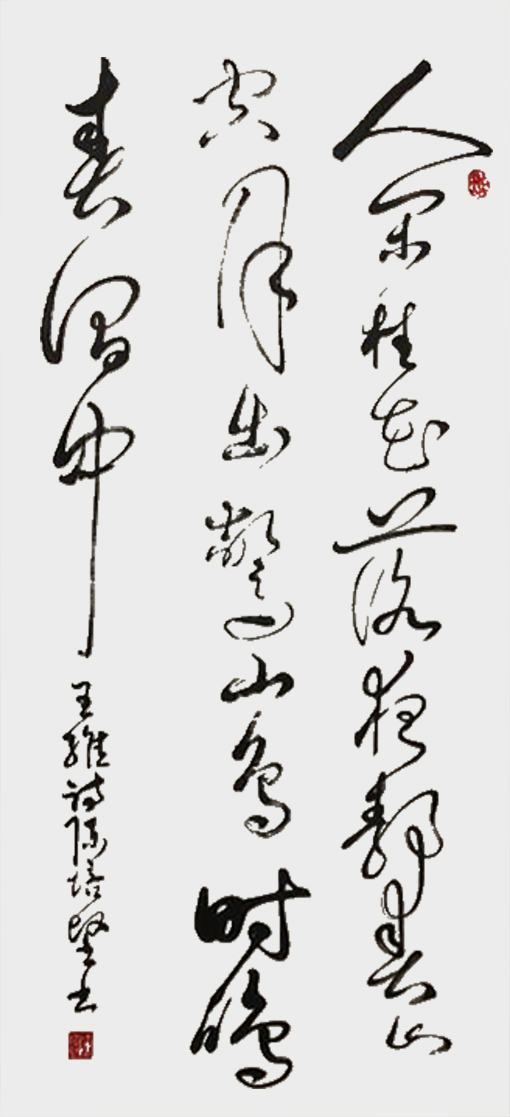 人闲桂花落夜静春山
空月出惊山鸟时鸣
春涧中
王维诗陈培坚书